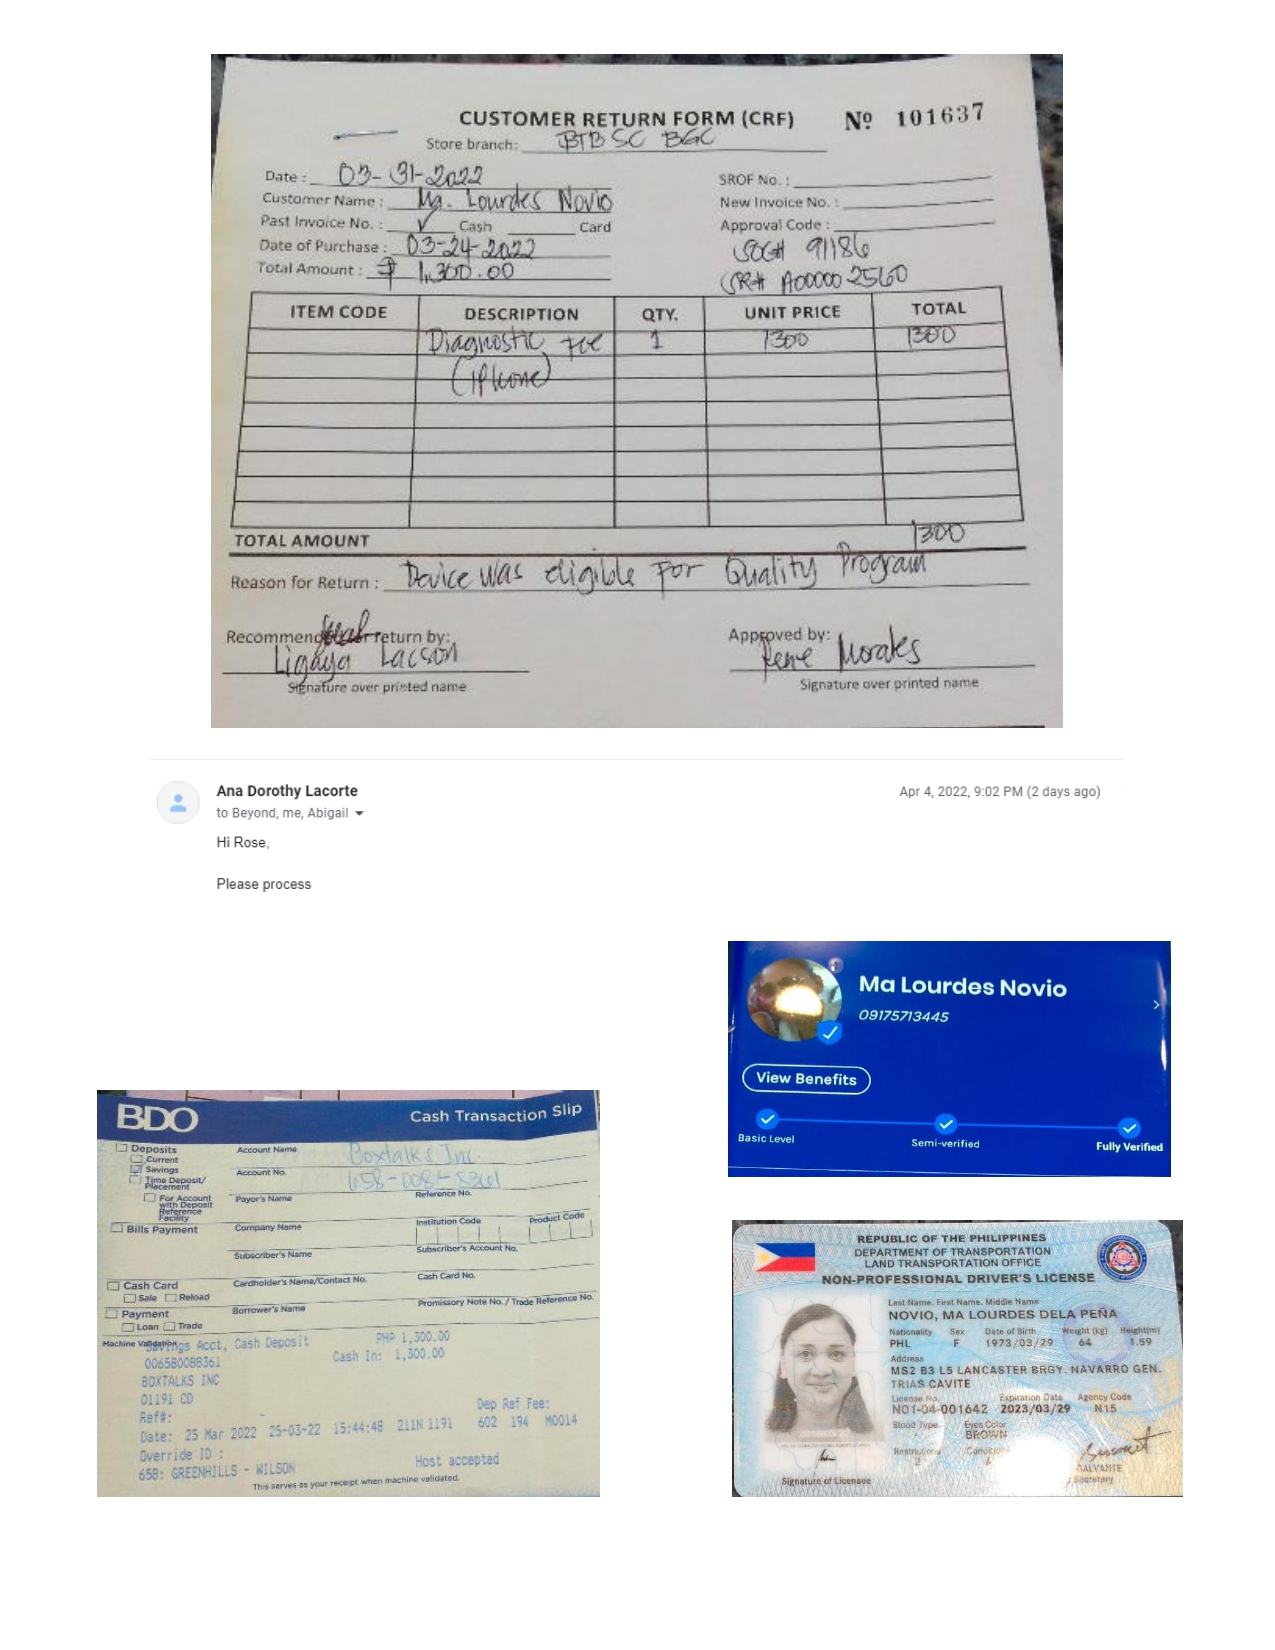 CUSTOMER RETURN FORM (CRF) Nº 101637
Store branch: BTB SC BGC
Date : 03-31-2022
SROF No. :
Customer Name : Ma. Lourdes Novio
New Invoice No. :
Past Invoice No. : ✓ Cash Card
Approval Code :
Date of Purchase : 03-24-2022
SOG# 91186
Total Amount : ₱ 1,300.00
SR# A000002560
ITEM CODE DESCRIPTION QTY. UNIT PRICE TOTAL
Diagnostic Fee 1 1300 1300
(iPhone)
TOTAL AMOUNT 1300
Reason for Return : Device was eligible for Quality Program
Recommend return by:
Ligaya Lacson
Signature over printed name
Approved by:
Rene Morales
Signature over printed name
Ana Dorothy Lacorte Apr 4, 2022, 9:02 PM (2 days ago)
to Beyond, me, Abigail
Hi Rose,
Please process
Ma Lourdes Novio
09175713445
View Benefits
Basic Level Semi-verified Fully Verified
BDO Cash Transaction Slip
Deposits
Current
Savings
Time Deposit/
Placement
For Account
with Deposit
Reference
Facility
Bills Payment
Cash Card
Sale Reload
Payment
Loan Trade
Account Name Boxtalks Inc.
Account No. 658-008-8361
Payor's Name Reference No.
Company Name Institution Code Product Code
Subscriber's Name Subscriber's Account No.
Cardholder's Name/Contact No. Cash Card No.
Borrower's Name Promissory Note No. / Trade Reference No.
Machine Validation
Savings Acct, Cash Deposit PHP 1,300.00
006580088361 Cash In: 1,300.00
BOXTALKS INC
01191 CD
Ref#: - Dep Ref Fee:
Date: 25 Mar 2022 25-03-22 15:44:48 211N 1191 602 194 M0014
Override ID :
658: GREENHILLS - WILSON Host accepted
This serves as your receipt when machine validated.
REPUBLIC OF THE PHILIPPINES
DEPARTMENT OF TRANSPORTATION
LAND TRANSPORTATION OFFICE
NON-PROFESSIONAL DRIVER'S LICENSE
Last Name, First Name, Middle Name
NOVIO, MA LOURDES DELA PEÑA
Nationality Sex Date of Birth Weight (kg) Height(m)
PHL F 1973/03/29 64 1.59
Address
MS2 B3 L5 LANCASTER BRGY. NAVARRO GEN.
TRIAS CAVITE
License No. Expiration Date Agency Code
N01-04-001642 2023/03/29 N15
Blood Type Eyes Color
BROWN
Restrictions Conditions
2
Signature of Licensee